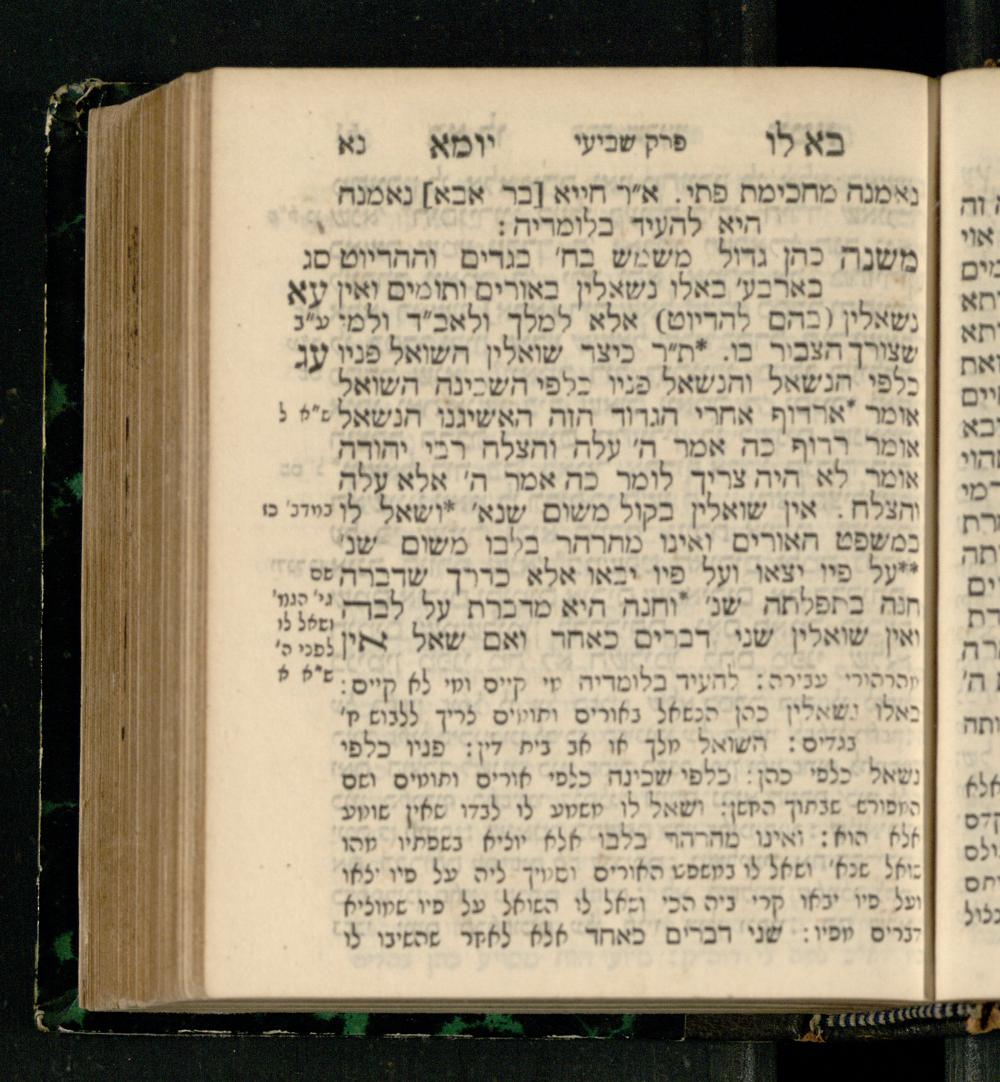 בא לו פרק שביעי יומא נא
נאמנה מחכימת פתי. א״ר חייא [בר אבא] נאמנה
היא להעיד בלומדיה:
משנה כהן גדול משמש בח׳ בגדים וההדיוט סג
בארבע׳ באלו נשאלין באורים ותומים ואין עא
נשאלין (בהם להדיוט) אלא למלך ולאב״ד ולמי ע״ב
שצורך הצבור בו. *ת״ר כיצד שואלין השואל פניו עג
כלפי הנשאל והנשאל פניו כלפי השכינה השואל
אומר *ארדוף אחרי הגדוד הזה האשיגנו הנשאל ש״א ל
אומר רדוף כה אמר ה׳ עלה והצלח רבי יהודה
אומר לא היה צריך לומר כה אמר ה׳ אלא עלה
והצלח. אין שואלין בקול משום שנא׳ *ושאל לו במדב׳ כז
במשפט האורים ואינו מהרהר בלבו משום שנ׳
**על פיו יצאו ועל פיו יבאו אלא כדרך שדברה שם
חנה בתפלתה שנ׳ *וחנה היא מדברת על לבה גי׳ הגמ׳
ואין שואלין שני דברים כאחד ואם שאל אין
ושאל לו
לפני ה׳
ש״א א
מהרהורי עבירה: להעיד בלומדיה מי קיים ומי לא קיים:
באלו נשאלין כהן הנשאל באורים ותומים צריך ללבוש ח׳
בגדים: השואל מלך או אב בית דין: פניו כלפי
נשאל כלפי כהן: כלפי שכינה כלפי אורים ותומים ושם
המפורש שבתוך החשן: ושאל לו משמע לו לבדו שאין שומע
אלא הוא: ואינו מהרהר בלבו אלא יוציא בשפתיו מהו
שואל שנא׳ ושאל לו במשפט האורים וסמיך ליה על פיו יצאו
ועל פיו יבאו קרי ביה הכי ושאל לו השואל על פיו שמוציא
דברים מפיו: שני דברים כאחד אלא לאחר שהשיבו לו